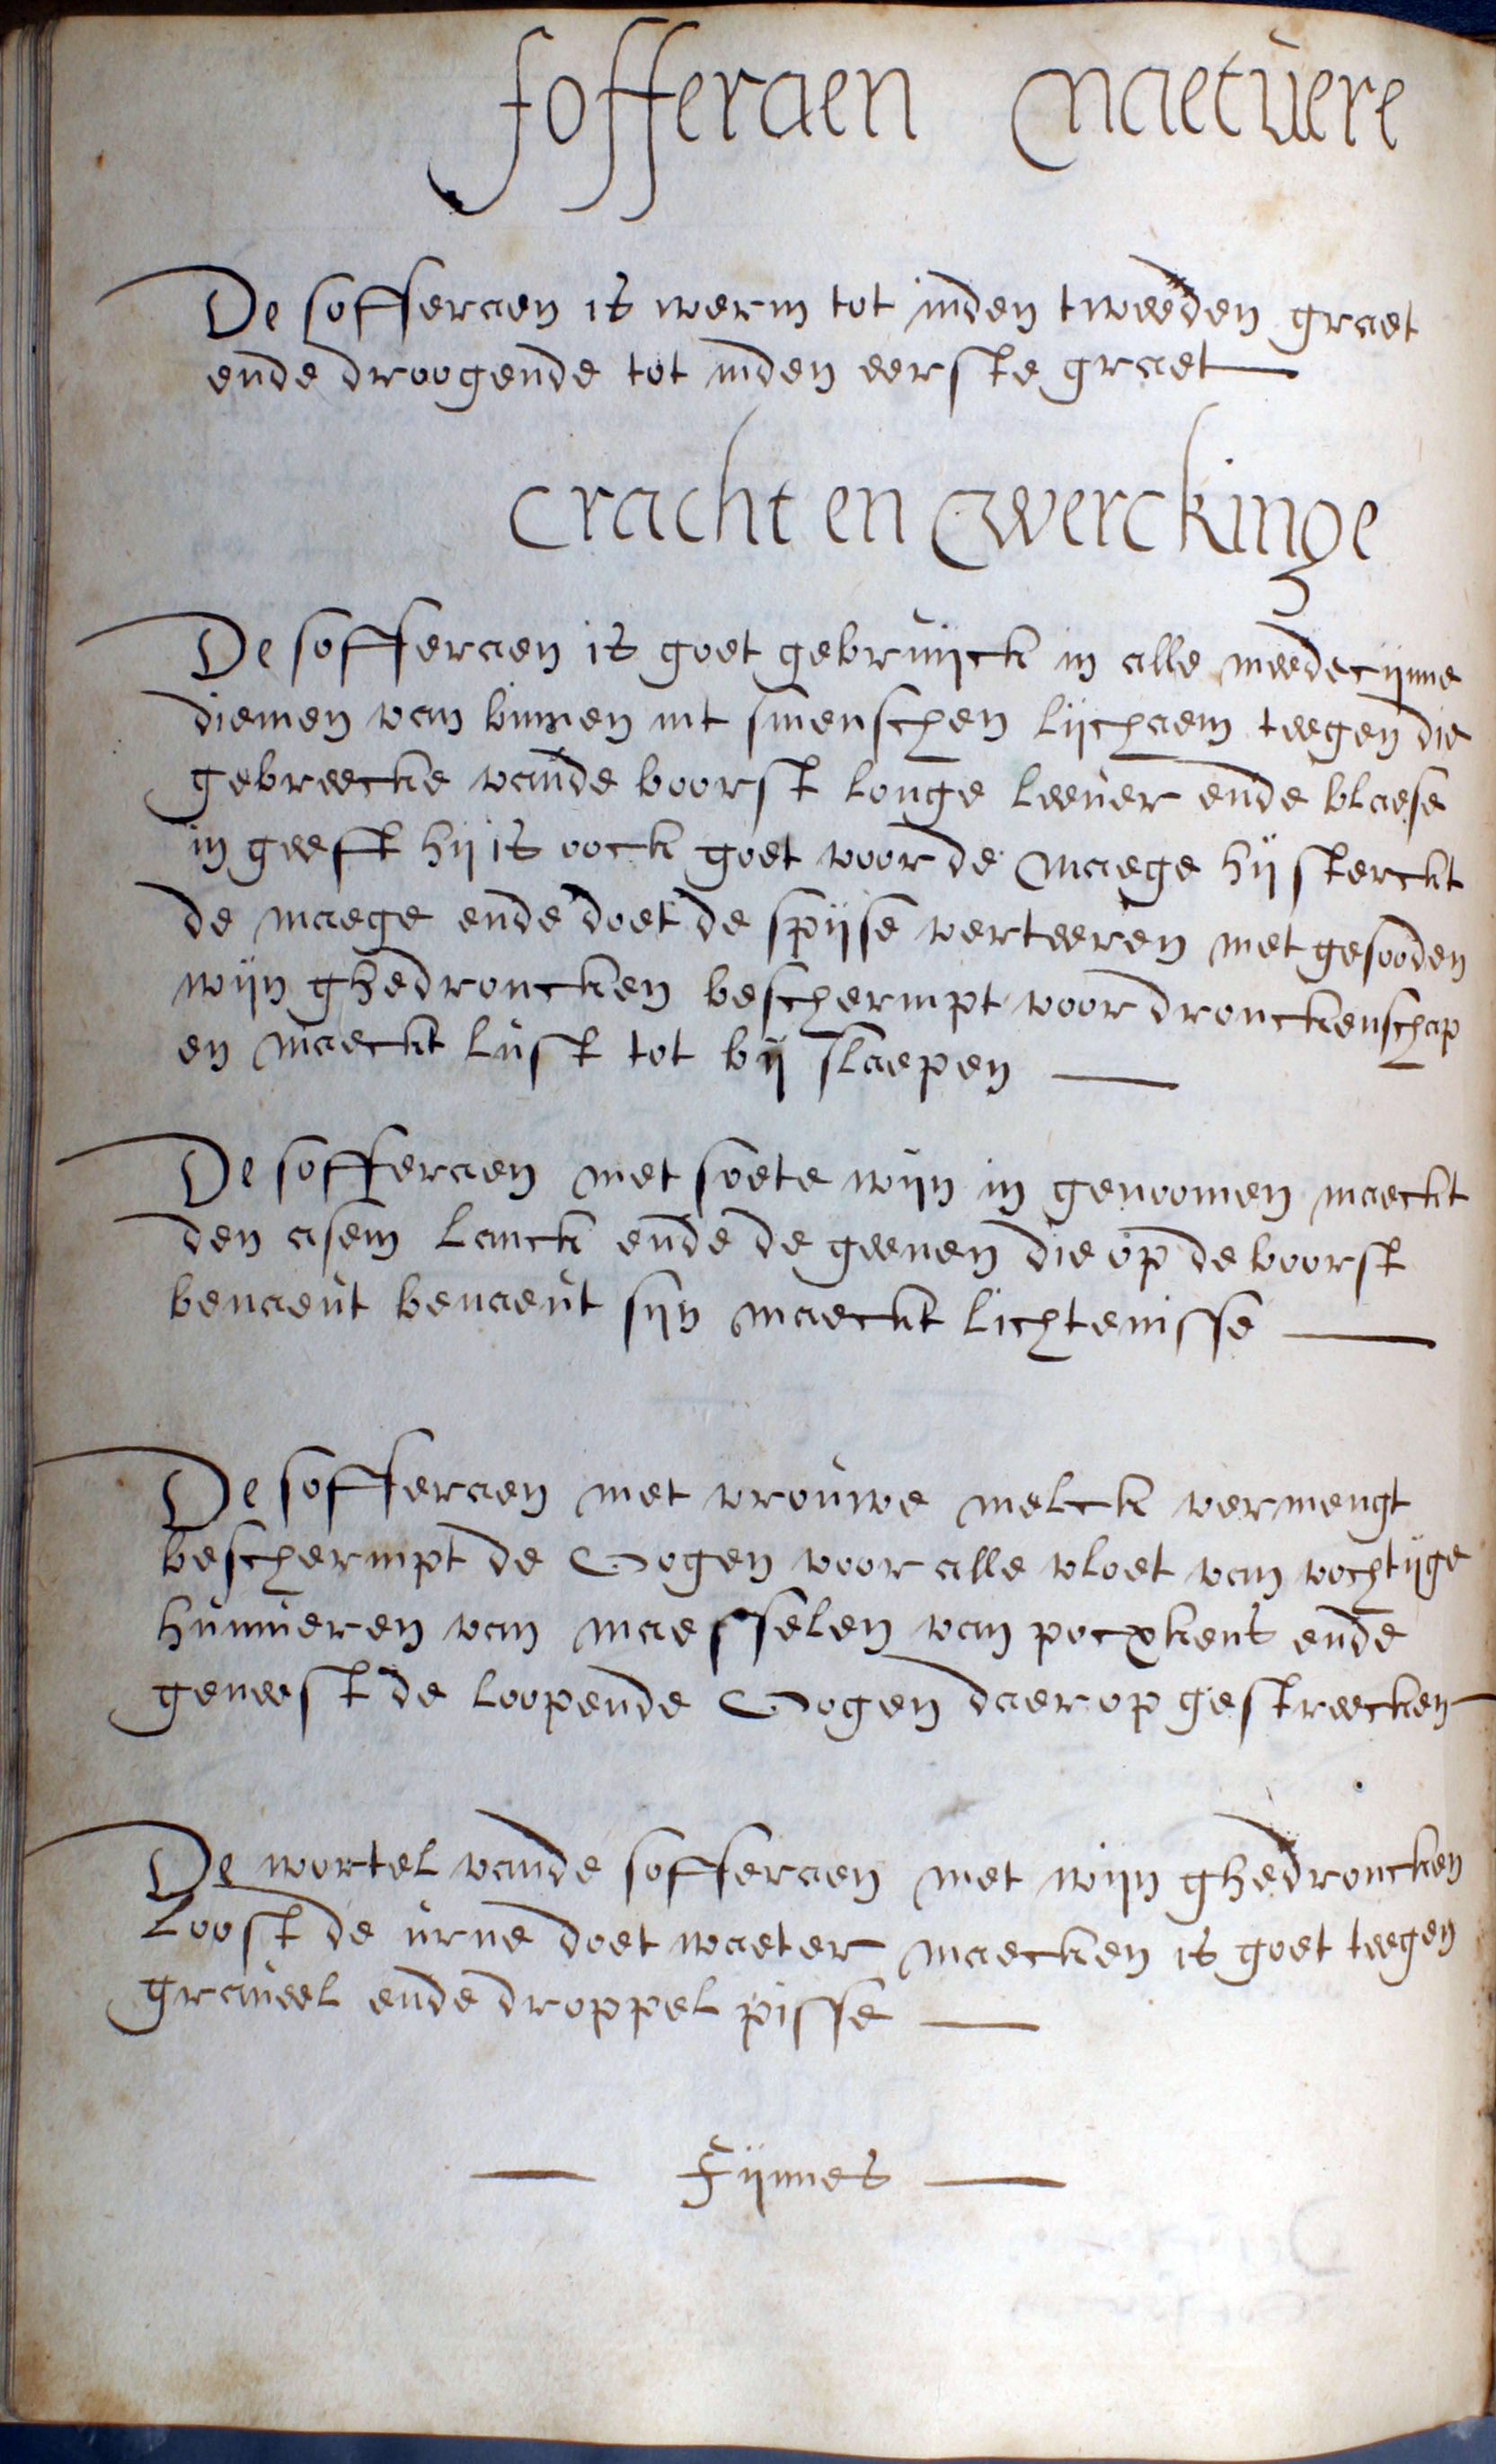 sofferaen naetuere
De sofferaen is werm tot inden tweeden graet
ende droogende tot inden eerste graet
cracht en werckinge
De sofferaen is goet gebruijck in alle meedecijnne
diemen van binnen int smenschen lijchaem teegen die
gebreecke vande boorst longe leever ende blaese
in geeft hij is oock goet voor de maege hij sterckt
de maege ende doet de spijse verteeren met gesooden
wijn ghedroncken beschermpt voor dronckenschap
en maeckt lust tot bij slaepen
De sofferaen met soete wijn in genoomen maeckt
den asem lanck ende de geenen die op de boorst
benaeut benaeut sijn maeckt lichtenisse
De sofferaen met vrouwe melck vermengt
beschermpt de Oogen voor alle vloet van vochtijge
humueren van maesselen van pocxkens ende
geneest de loopende Oogen daer op gestreecken
De wortel vande sofferaen met wijn ghedroncken
Loost de urne doet waeter maecken is goet teegen
graveel ende droppel pisse
Fijnnes